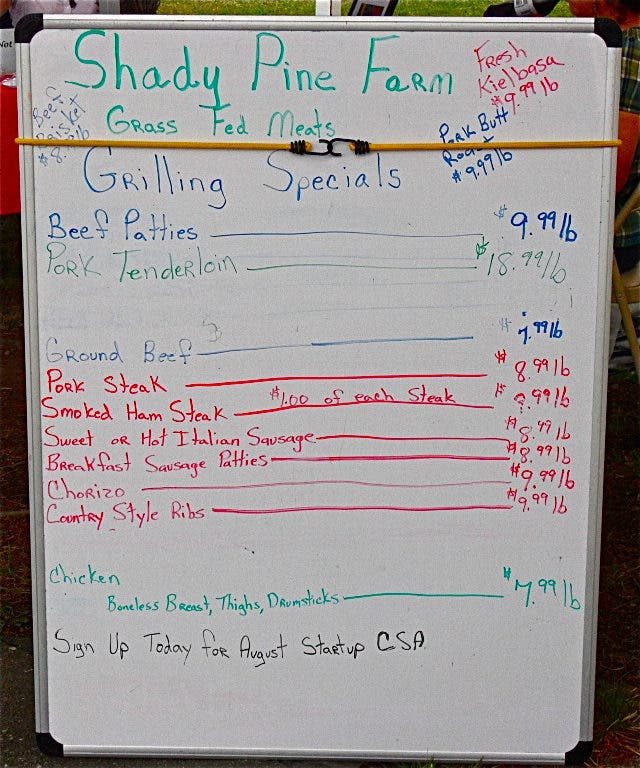 Shady Pine Farm
Fresh
Kielbasa
$9.99 lb
Beef
$8.
Grass Fed Meats
Pork Butt
Roast
$9.99 lb
Grilling Specials
Beef Patties $9.99 lb
Pork Tenderloin $18.99 lb
Ground Beef $7.99 lb
Pork Steak $8.99 lb
$1.00 of each Steak
Smoked Ham Steak .99 lb
Sweet or Hot Italian Sausage $8.99 lb
Breakfast Sausage Patties $8.99 lb
Chorizo $9.99 lb
Country Style Ribs $9.99 lb
Chicken
Boneless Breast, Thighs, Drumsticks $7.99 lb
Sign Up Today for August Startup CSA
Not